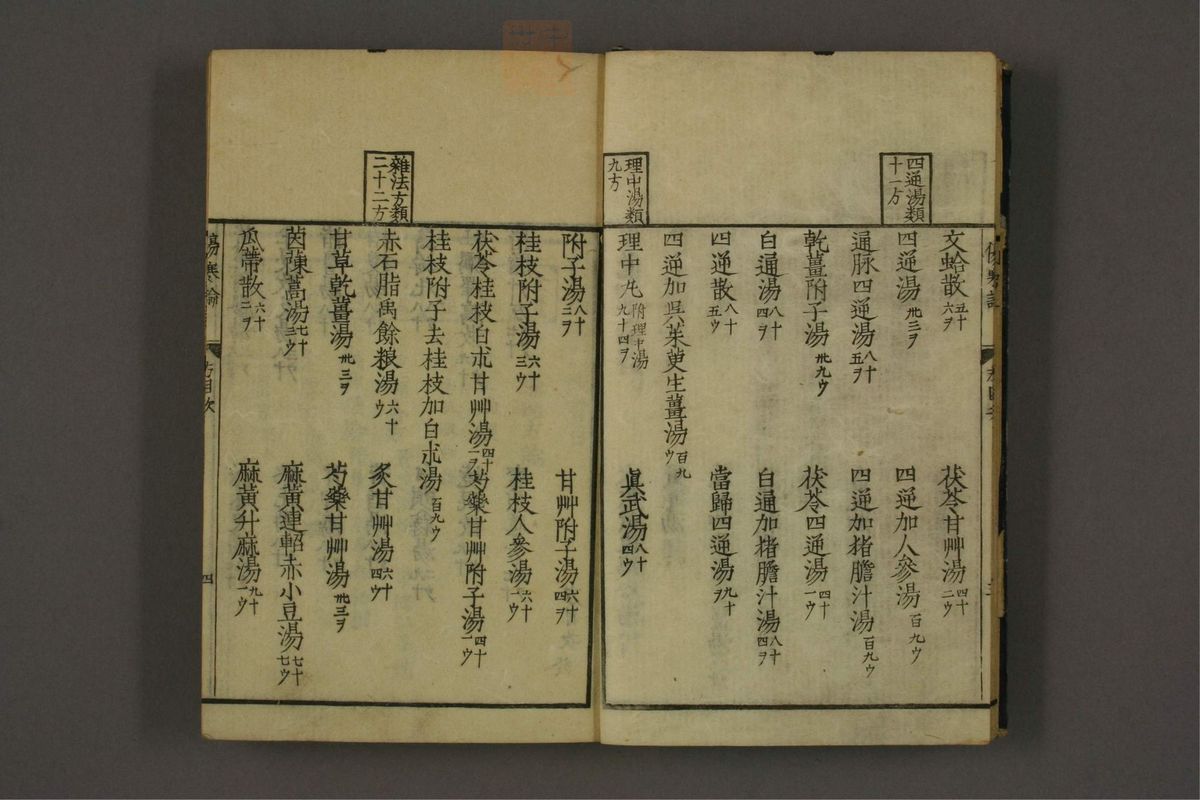 四逆湯類
十一方
文蛤散 五十六ヲ 茯苓甘艸湯 四十二ウ
四逆湯 卅三ヲ 四逆加人參湯 百九ウ
通脉四逆湯 八十五ヲ 四逆加猪膽汁湯 百九ウ
乾薑附子湯 卅九ウ 茯苓四逆湯 四十一ウ
白通湯 八十四ヲ 白通加猪膽汁湯 八十四ヲ
四逆散 八十五ウ 當歸四逆湯 九十ヲ
四逆加吳茱萸生薑湯 百九ウ
理中湯類
九方
理中丸 附理中湯 九十四ヲ 眞武湯 八十四ウ
附子湯 八十三ヲ 甘艸附子湯 六十四ヲ
桂枝附子湯 六十三ウ 桂枝人參湯 六十一ウ
茯苓桂枝白朮甘艸湯 四十一ヲ 芍藥甘艸附子湯 四十一ウ
桂枝附子去桂枝加白朮湯 百九ウ
雜法方類
二十二方
赤石脂禹餘粮湯 六十ウ 炙甘艸湯 六十四ウ
甘草乾薑湯 卅三ヲ 芍藥甘艸湯 卅三ヲ
茵蔯蒿湯 七十三ウ 麻黃連軺赤小豆湯 七十七ウ
瓜蒂散 六十二ヲ 麻黃升麻湯 九十一ウ
傷寒論 目次 四